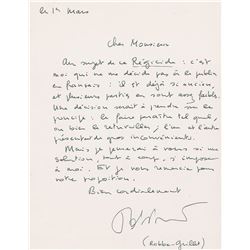 le 1er Mars
Cher Monsieur
Au sujet de ce Régicide : c'est
moi qui ne me décide pas à le publier
en français : il est déjà si ancien,
et plusieurs parties en sont assez faibles.
Une décision serait à prendre sur le
principe : le faire paraître tel quel,
ou bien le retravailler, l'un et l'autre
présentent de gros inconvénients.
Mais je penserai à vous si une
solution, tout à coup, s'impose
à moi. Et je vous remercie pour
votre proposition.
Bien cordialement
(Robbe-Grillet)